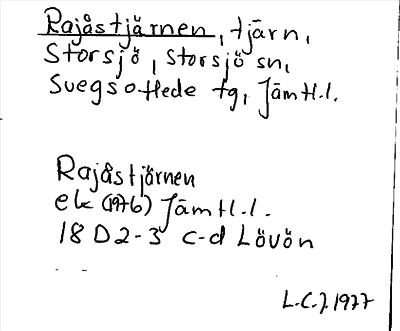 Rajåstjärnen, tjärn,
Storsjö, Storsjö sn,
Svegs o Hede tg, Jämtl.l.
Rajåstjärnen
ek (1976) Jämtl.l.
18 D 2-3 c-d Lövön
L.C.J. 1977